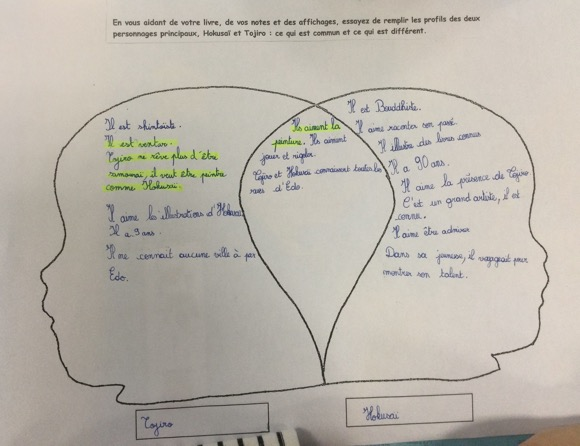 En vous aidant de votre livre, de vos notes et des affichages, essayez de remplir les profils des deux
personnages principaux, Hokusaï et Tojiro : ce qui est commun et ce qui est différent.
Il est shintoïste.
Il est
Tojiro ne rêve plus d'être
samouraï, il veut être peintre
comme Hokusai.
Il aime les illustrations d'Hokusai
Il a 9 ans.
Il ne connait aucune ville à par
Edo.
Ils aiment la
peinture. Ils aiment
jouer et rigoler.
Tojiro et Hokusai connaissent toutes les
rues d'Edo.
Il est Bouddhiste.
Il aime raconter son passé.
Il illustre des livres connus
Il a 90 ans.
Il aime la présence de Tojiro
C'est un grand artiste, il est
connu.
Il aime être admirer
Dans sa jeunesse, il voyageait pour
montrer son talent.
Tojiro
Hokusai